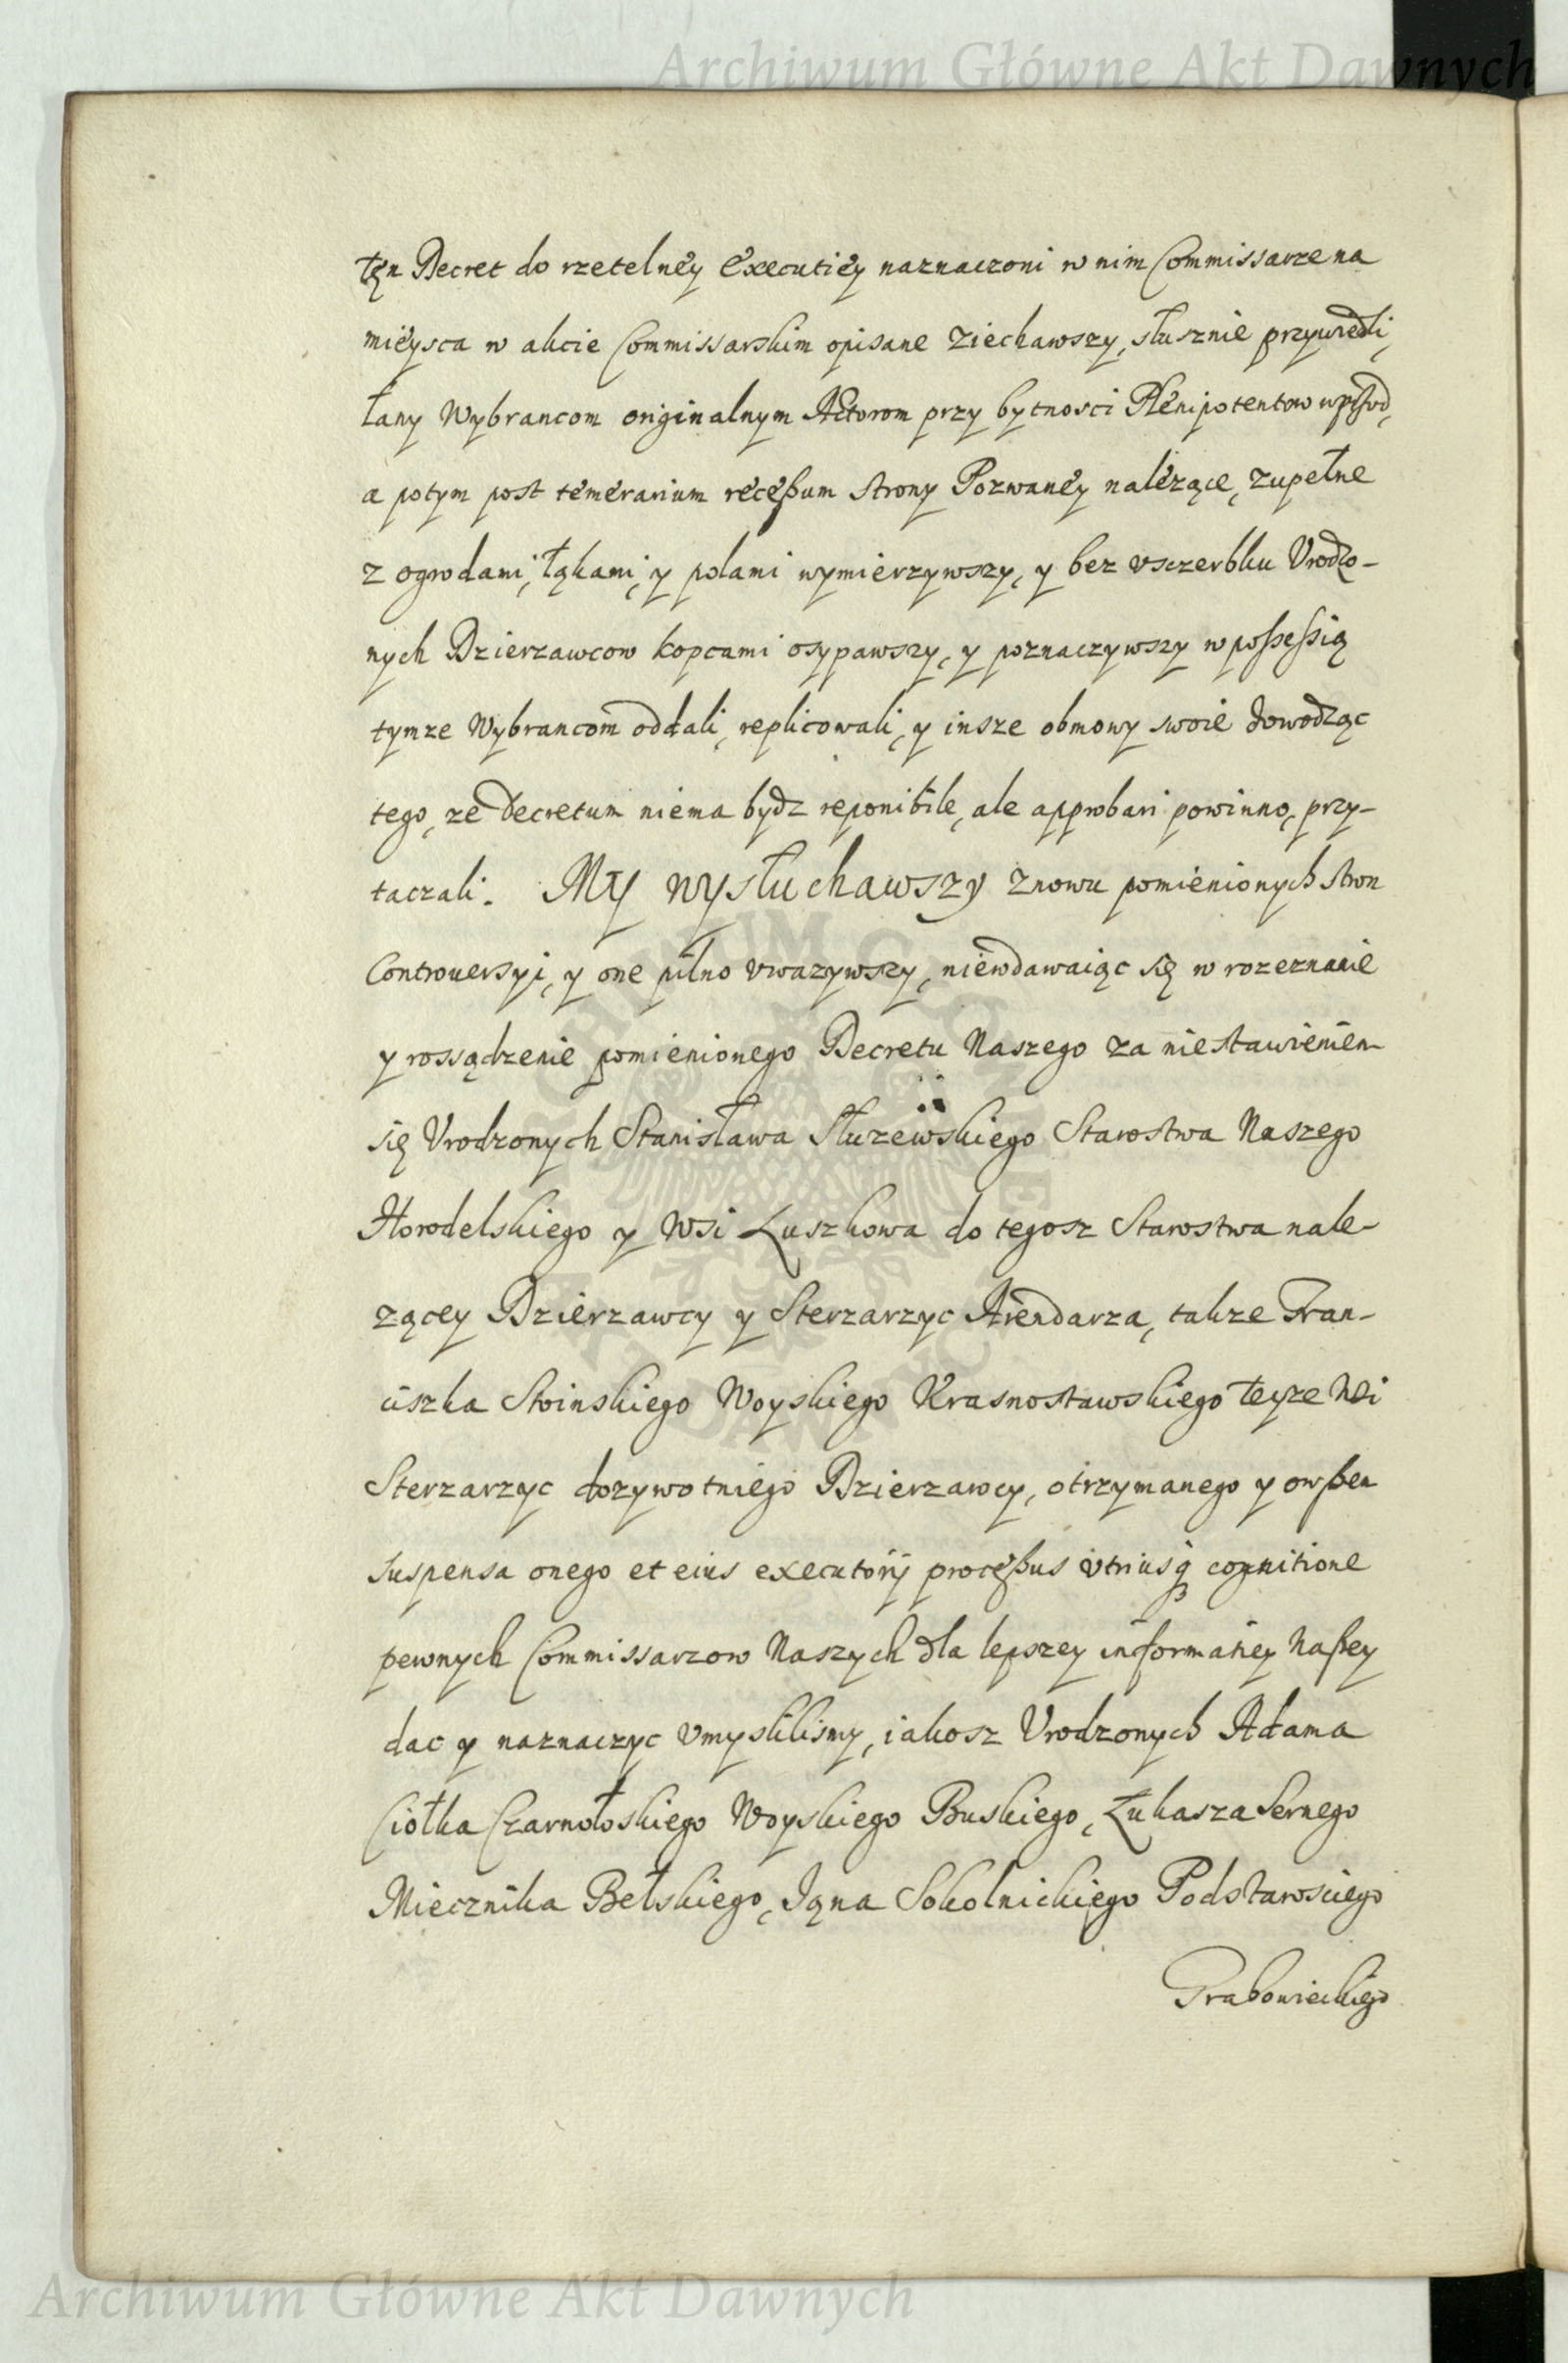 Archiwum Główne Akt Dawnych
ten Decret do rzetelney executiey naznaczoni w nim Commissarze na
mieysca w akcie Commissarskim opisane ziechawszy, słusznie przywiedli,
łany Wybrancom originalnym Actorom przy bytnosci Plenipotentow wprzod,
a potym post temerarium recessum strony Pozwaney należące, zupełne
z ogrodami, łąkami, y polami wymierzywszy, y bez vsczerbku Vrodzo-
nych Dzierzawcow kopcami osypawszy, y poznaczywszy w possessią
tymze Wybrancom oddali, replicowali, y insze obmowy swoie dowodząc
tego, ze decretum niema bydz reponibile, ale approbari powinno, przy-
taczali. My wysłuchawszy znowu pomienionych stron
Controversyi, y one pilno vwazywszy, niewdawaiąc się w rozeznanie
y rossądzenie pomienionego Decretu Naszego za niestawieniem
się Vrodzonych Stanisława Służewskiego Starostwa Naszego
Horodelskiego y Wsi Łuszkowa do tegosz Starostwa nale-
zącey Dzierzawcy y Sterzarzyc Arendarza, takze Fran-
ciszka Stoinskiego Woyskiego Krasnostawskiego teyze Wsi
Sterzarzyc dozywotniego Dzierzawcy, otrzymanego y owszem
suspensa onego et eius executorij processus vtriusq cognitione
pewnych Commissarzow Naszych dla lepszey informatiey Naszey
dac y naznaczyc vmyslilismy, iakosz Vrodzonych Adama
Ciołka Czarnołoskiego Woyskiego Buskiego, Łukasza Sernego
Miecznika Bełskiego, Jana Sokolnickiego Podstarosciego
Grabowieckiego
Archiwum Główne Akt Dawnych